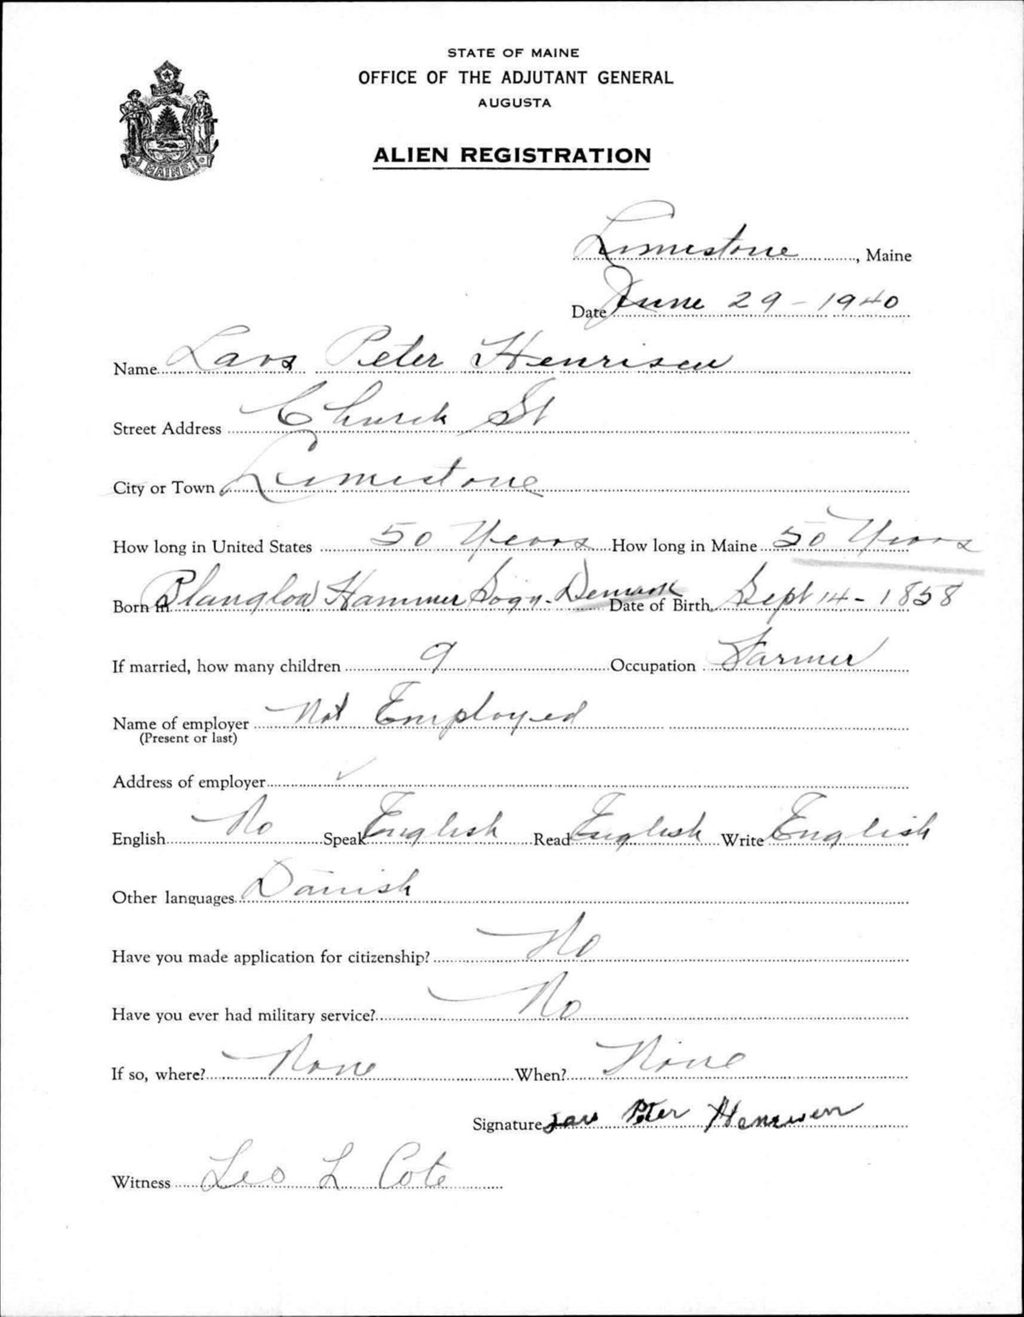 STATE OF MAINE
OFFICE OF THE ADJUTANT GENERAL
AUGUSTA
ALIEN REGISTRATION
MAINE
Limestone, Maine
Date June 29-1940
Name Lars Peter Henrisen
Street Address Church St
City or Town Limestone
How long in United States 50 Years How long in Maine 50 Years
Born in Hammer Denmark Date of Birth Sept 14-1858
If married, how many children 9 Occupation Farmer
Name of employer Not Employed
(Present or last)
Address of employer
English No Speak English Read English Write English
Other languages Danish
Have you made application for citizenship? No
Have you ever had military service? No
If so, where? None When? None
Signature Lars Peter Henrisen
Witness Leo L Cote